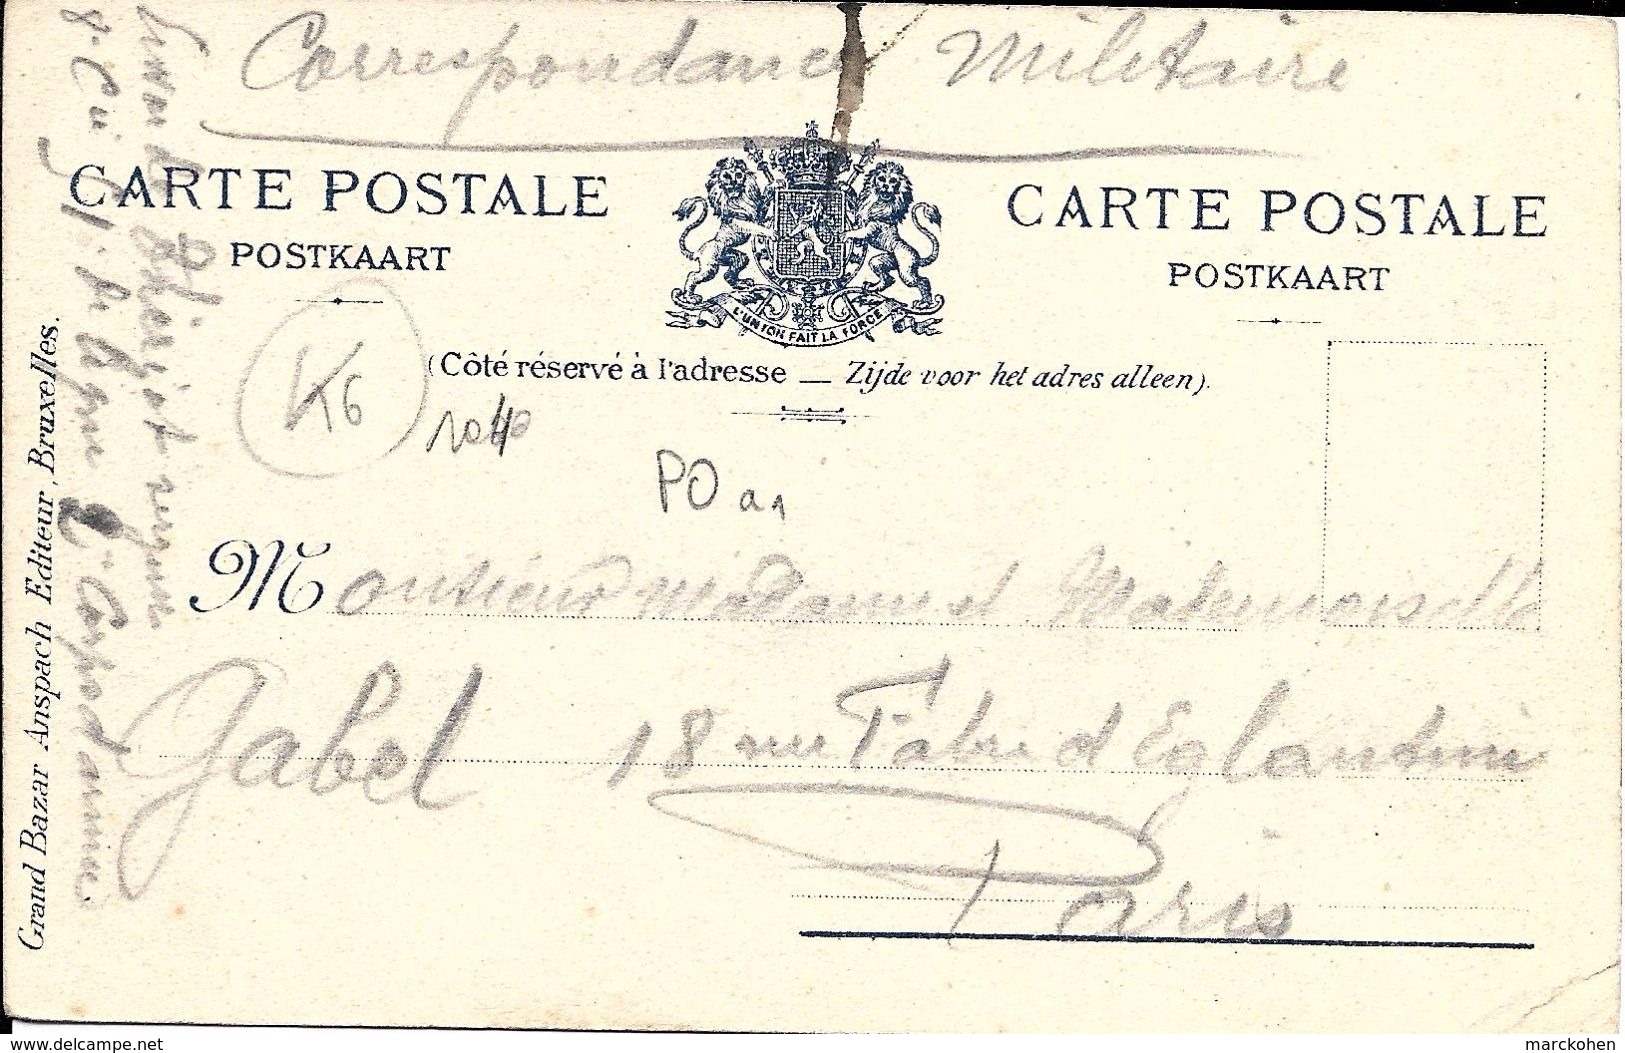 Correspondance Militaire
CARTE POSTALE
POSTKAART
CARTE POSTALE
POSTKAART
L'UNION FAIT LA FORCE
(Côté réservé à l'adresse — Zijde voor het adres alleen).
K6
1040
PO a1
Monsieur Madame et Mademoiselle
Gabel 18 rue Fabre d Eglantine
Paris
8e Cie
de ligne 2e Corps d'armée
Grand Bazar Anspach Editeur, Bruxelles.
delcampe.net
marckohen